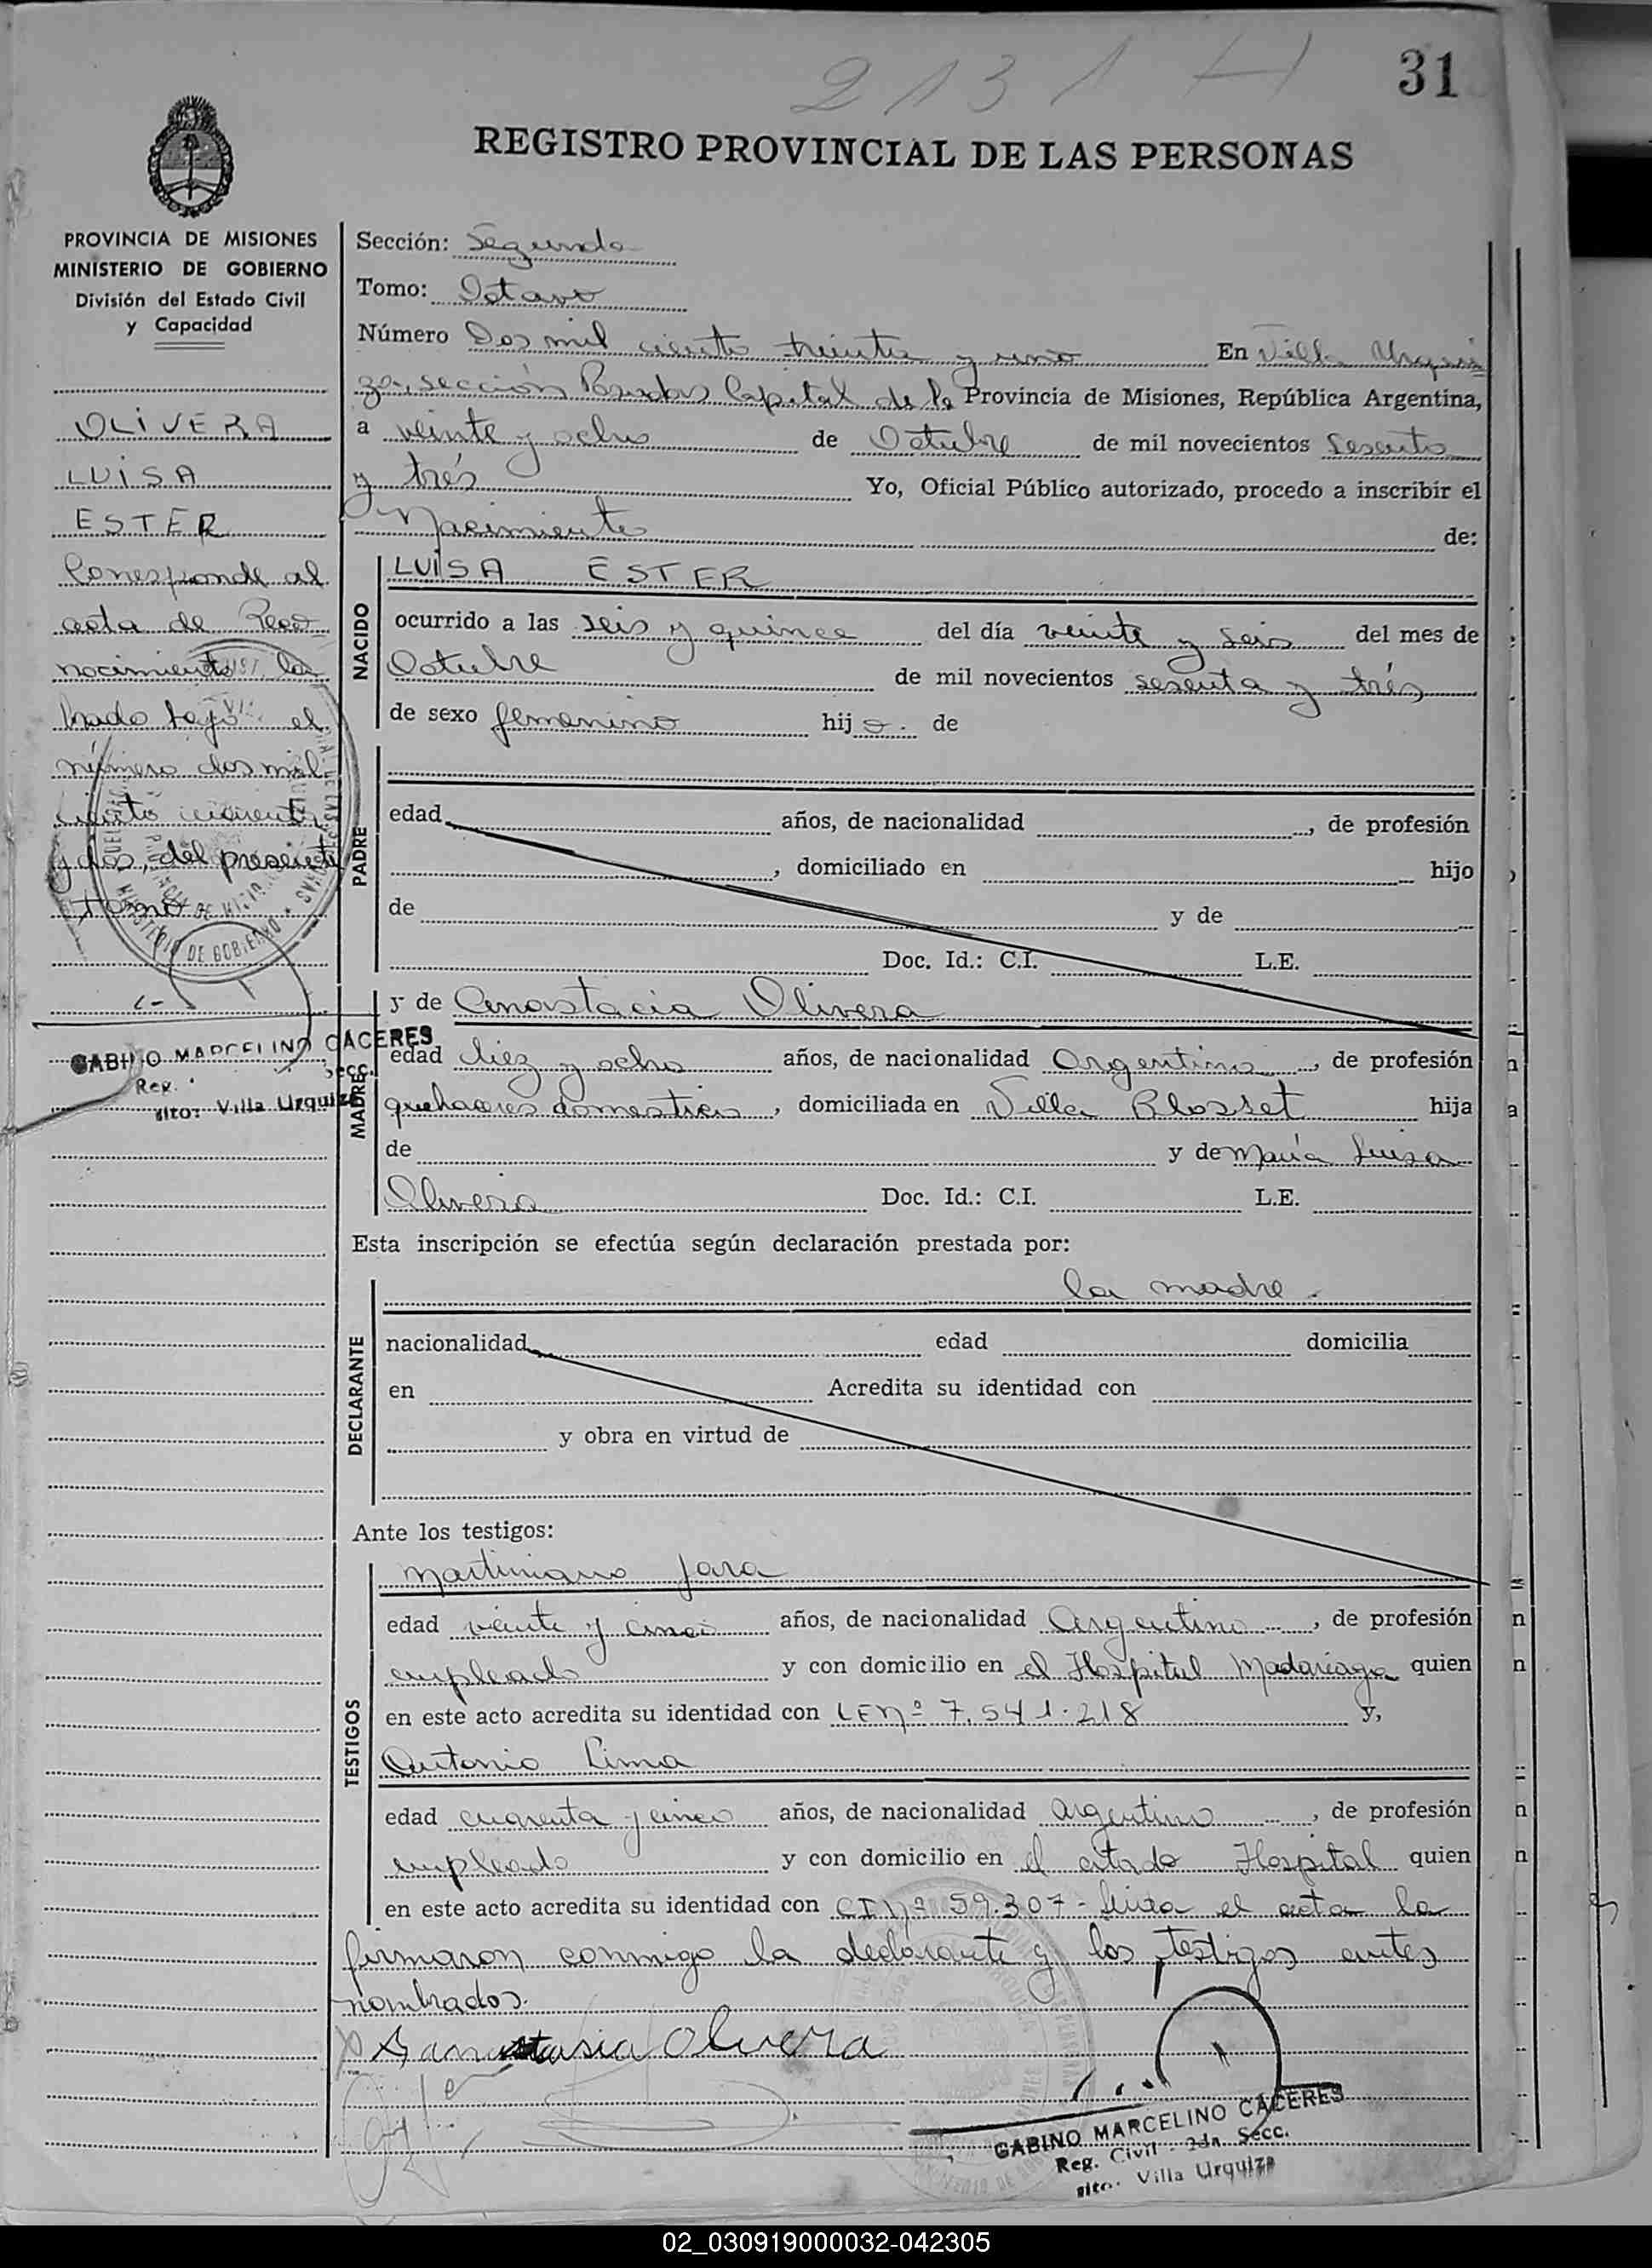 2131 H
31
REGISTRO PROVINCIAL DE LAS PERSONAS
PROVINCIA DE MISIONES
MINISTERIO DE GOBIERNO
División del Estado Civil
y Capacidad
OLIVERA
LUISA
ESTER
Corresponde al
acta de Reco
nocimiento la
brado bajo el
número dos mil
ciento cuarenta
y dos, del presente
tomo
GABINO MARCELINO CACERES
Reg. Secc.
sito: Villa Urquiza
Sección: Segunda
Tomo: Octavo
Número Dos mil ciento treinta y uno En Villa Urqui
za, sección Posadas Capital de la Provincia de Misiones, República Argentina,
a veinte y ocho de Octubre de mil novecientos sesenta
y trés Yo, Oficial Público autorizado, procedo a inscribir el
Nacimiento de:
NACIDO
LUISA ESTER
ocurrido a las seis y quince del día veinte y seis del mes de
Octubre de mil novecientos sesenta y trés
de sexo femenino hijo. de
PADRE
edad años, de nacionalidad , de profesión
, domiciliado en hijo
de y de
Doc. Id.: C.I. L.E.
MADRE
y de Anastacia Olivera
edad diez y ocho años, de nacionalidad Argentina, de profesión
quehaceres domesticos, domiciliada en Villa Blosset hija
de y de María Luisa
Olivera Doc. Id.: C.I. L.E.
Esta inscripción se efectúa según declaración prestada por:
DECLARANTE
la madre.
nacionalidad edad domicilia
en Acredita su identidad con
y obra en virtud de
Ante los testigos:
TESTIGOS
Martiniano Jara
edad veinte y cinco años, de nacionalidad Argentino, de profesión
empleado y con domicilio en el Hospital Madariaga quien
en este acto acredita su identidad con LE nº 7.541.218 y,
Antonio Lima
edad cuarenta y cinco años, de nacionalidad argentino, de profesión
empleado y con domicilio en el citado Hospital quien
en este acto acredita su identidad con CI nº 59.307- el acta la
firmaron conmigo la declarante y los testigos antes
nombrados.
Olivera
GABINO MARCELINO CACERES
Reg. Civil - 2da. Secc.
sito. Villa Urquiza
02_030919000032-042305